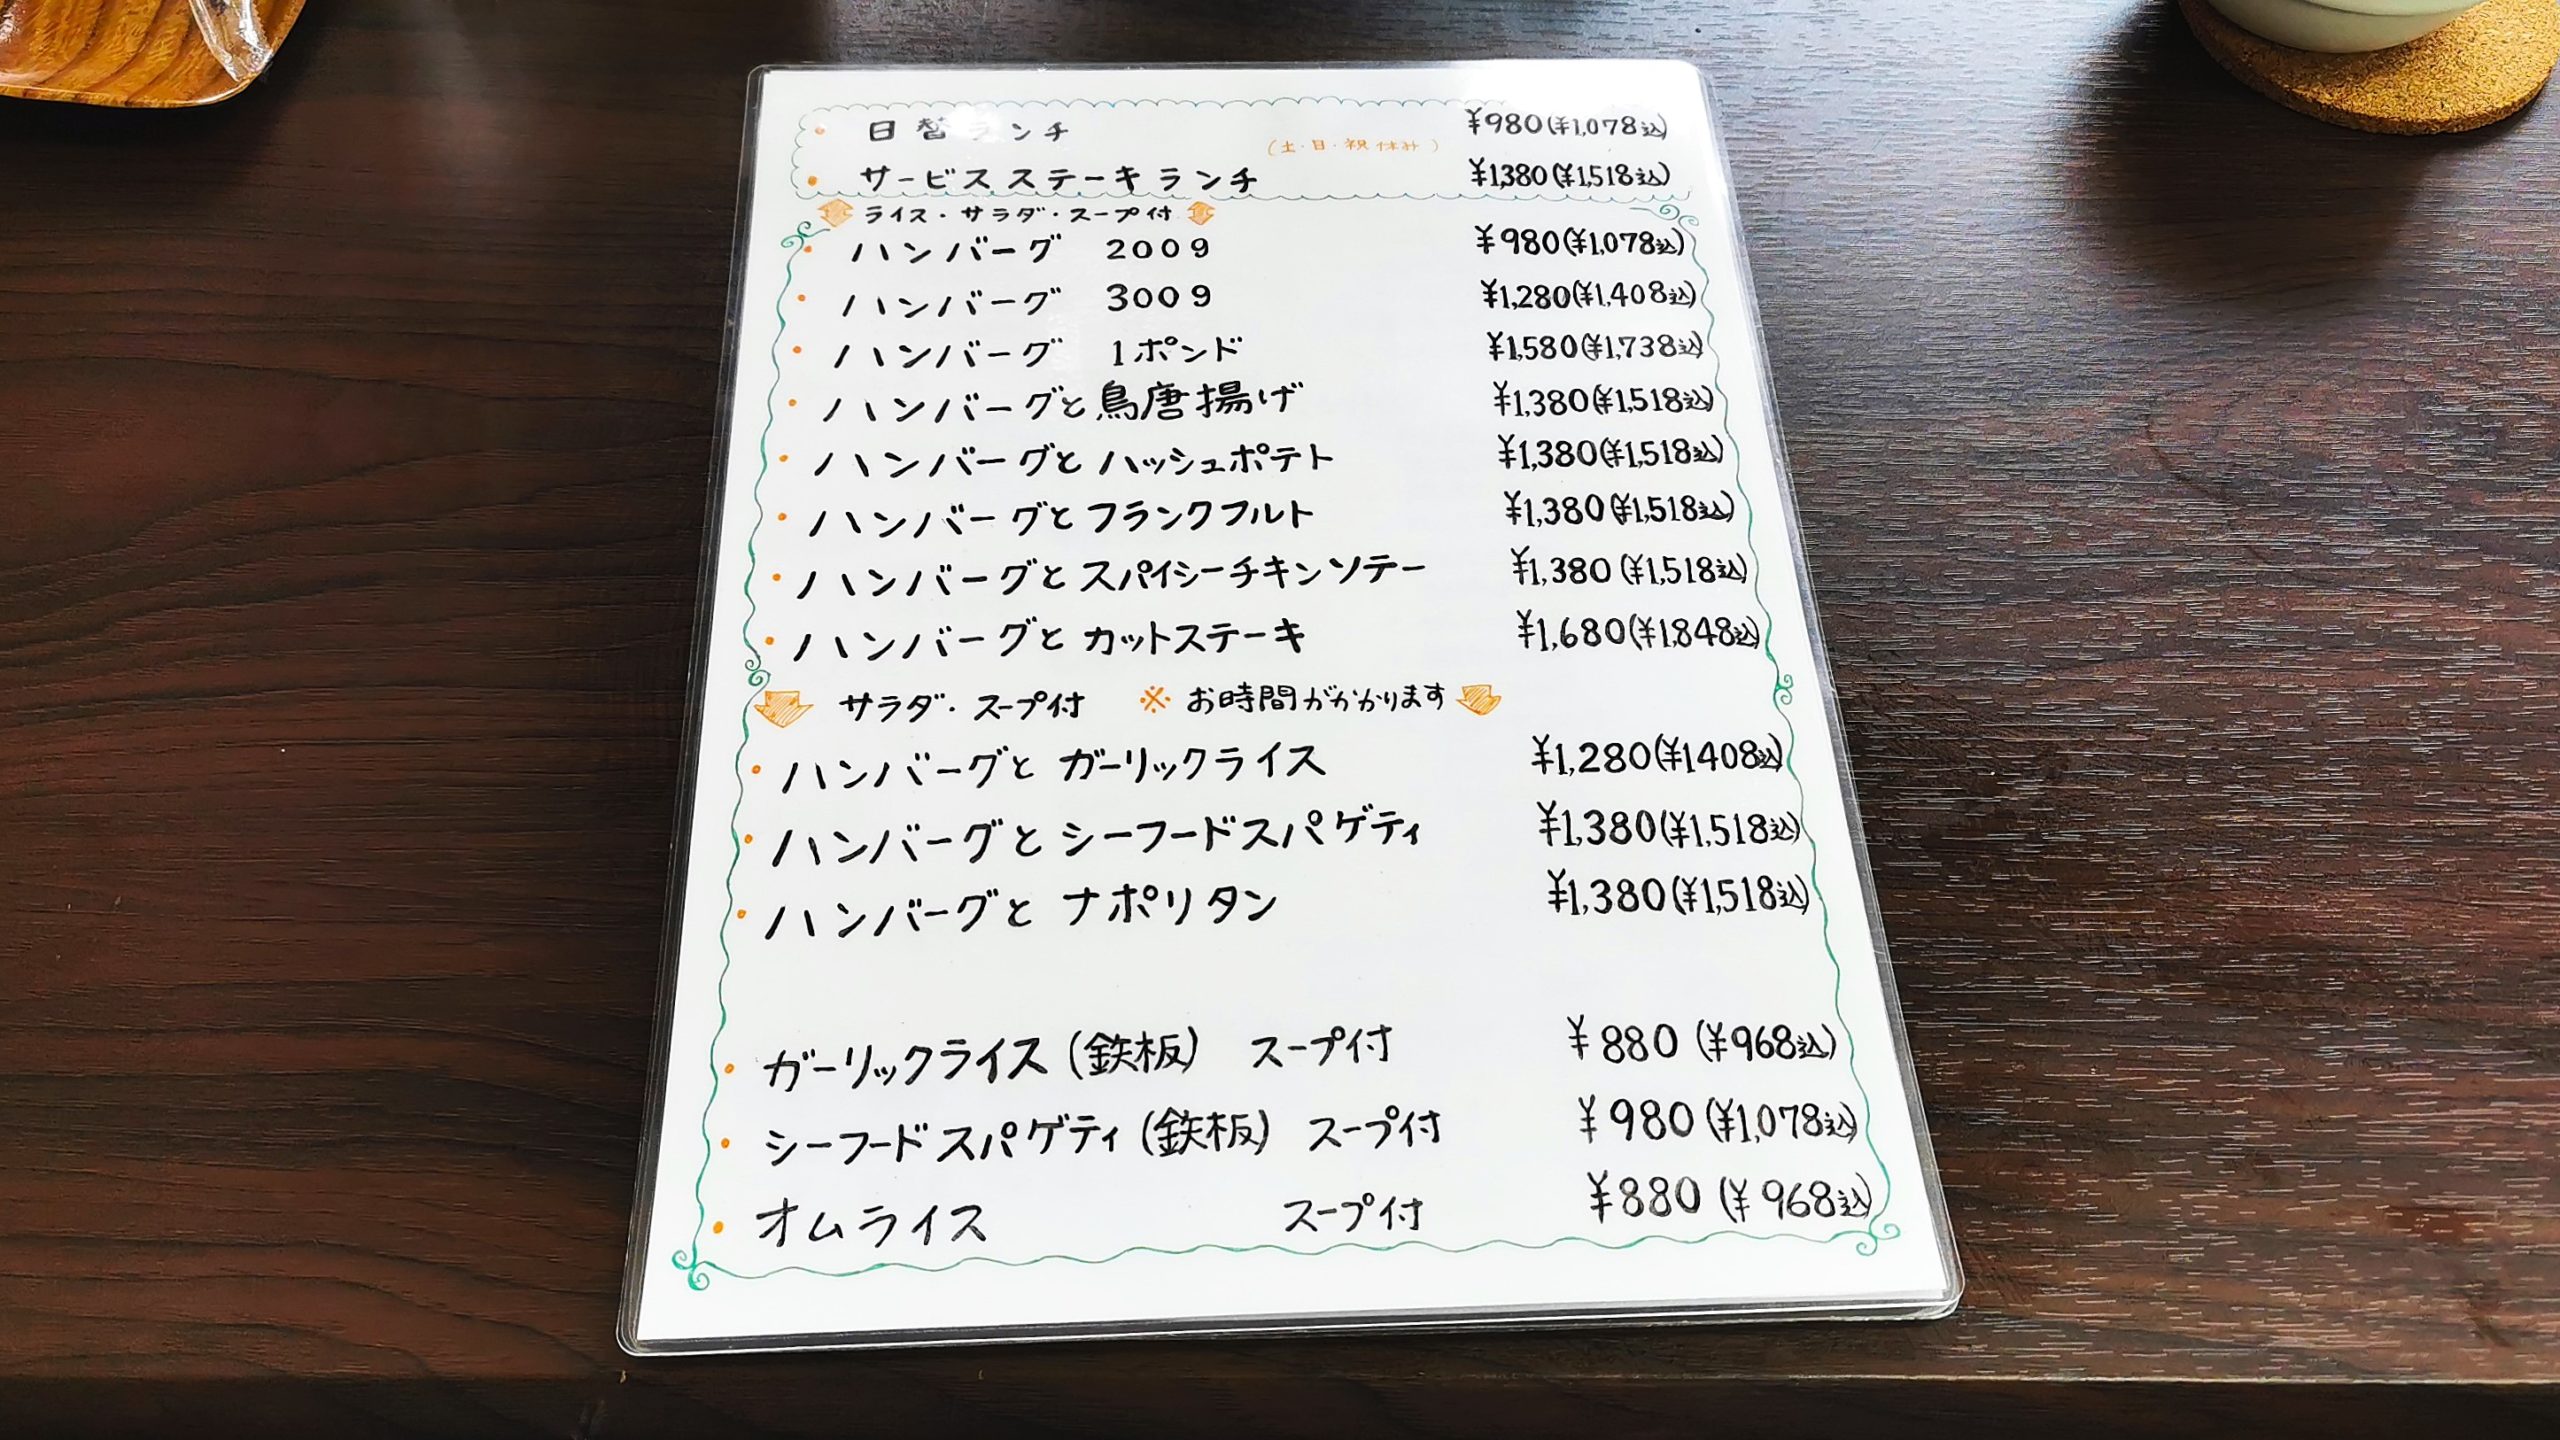 ・日替ランチ ¥980(¥1,078込)
(土・日・祝休み)
・サービスステーキランチ ¥1,380(¥1,518込)
ライス・サラダ・スープ付
・ハンバーグ 200g ¥980(¥1,078込)
・ハンバーグ 300g ¥1,280(¥1,408込)
・ハンバーグ 1ポンド ¥1,580(¥1,738込)
・ハンバーグと鳥唐揚げ ¥1,380(¥1,518込)
・ハンバーグとハッシュポテト ¥1,380(¥1,518込)
・ハンバーグとフランクフルト ¥1,380(¥1,518込)
・ハンバーグとスパイシーチキンソテー ¥1,380(¥1,518込)
・ハンバーグとカットステーキ ¥1,680(¥1,848込)
サラダ・スープ付 ※お時間がかかります
・ハンバーグとガーリックライス ¥1,280(¥1408込)
・ハンバーグとシーフードスパゲティ ¥1,380(¥1,518込)
・ハンバーグとナポリタン ¥1,380(¥1,518込)
・ガーリックライス(鉄板) スープ付 ¥880(¥968込)
・シーフードスパゲティ(鉄板) スープ付 ¥980(¥1,078込)
・オムライス スープ付 ¥880(¥968込)